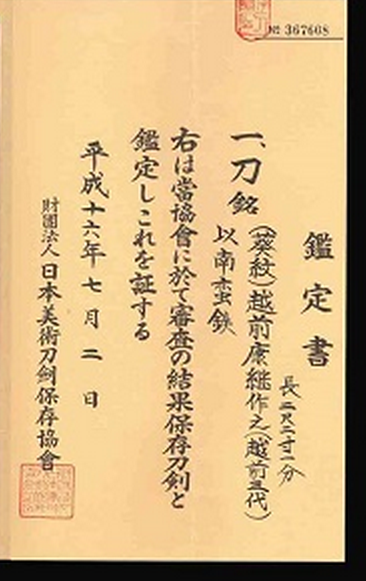 № 367608
鑑定書
長二尺二寸一分
一、刀 銘 (葵紋)越前康継作之(越前三代)
以南蛮鉄
右は當協會に於て審査の結果保存刀剣と
鑑定しこれを証する
平成十六年七月二日
財團法人日本美術刀劍保存協會